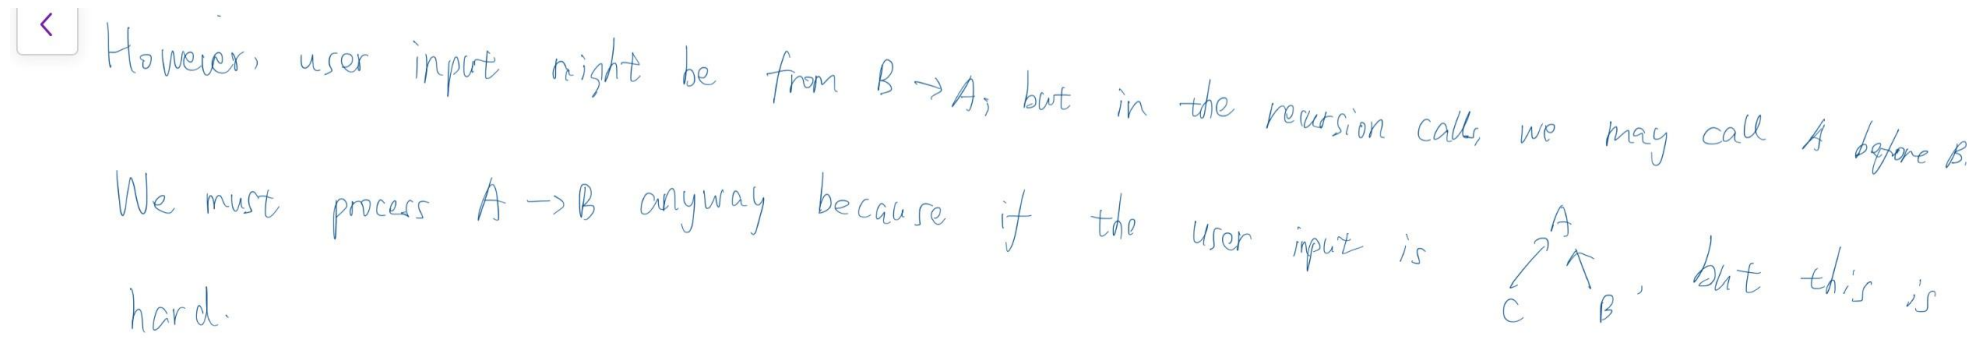 However, user input might be from B → A, but in the recursion calls, we may call A before B.
We must process A → B anyway because if the user input is A C B, but this is
hard.